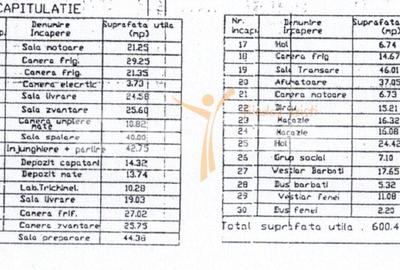 CAPITULATIE
Denumire Suprafata utila
incap. Incapere (mp)
Sala notoare 21.25
Camera frig. 29.25
Camera frig. 21.35
Camera elecrtic 3.73
Sala livrare 24.58
Sala zvantare 25.60
Camera umplere
mate 10.82
Sala spalare 40.00
Injunghiere + parlire 42.75
Depozit capatani 14.32
Depozit mate 13.74
Lab.Trichinel. 10.28
Sala livrare 19.03
Camera frif. 27.02
Camera zvantare 25.75
Sala preparare 44.38
Nr. Denumire Suprafata
incap. Incapere (mp)
17 Hol 6.74
18 Camera frig 14.67
19 Sala Transare 46.01
20 Afumatoare 37.05
21 Camera notoare 6.73
22 Birou 15.21
23 Magazie 16.32
24 Magazie 16.08
25 Hol 24.42
26 Grup social 7.10
27 Vestiar Barbati 17.65
28 Dus barbati 5.32
29 Vestiar femei 11.08
30 Dus femei 2.20
Total suprafata utila . 600.4